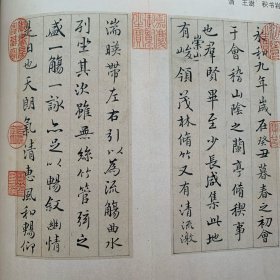 清 王澍
永和九年歲在癸丑暮春之初會
于會稽山陰之蘭亭脩禊事
也群賢畢至少長咸集此地
有崇山峻領茂林脩竹又有清流激
湍暎帶左右引以為流觴曲水
列坐其次雖無絲竹管弦之
盛一觴一詠亦足以暢敘幽情
是日也天朗氣清惠風和暢仰